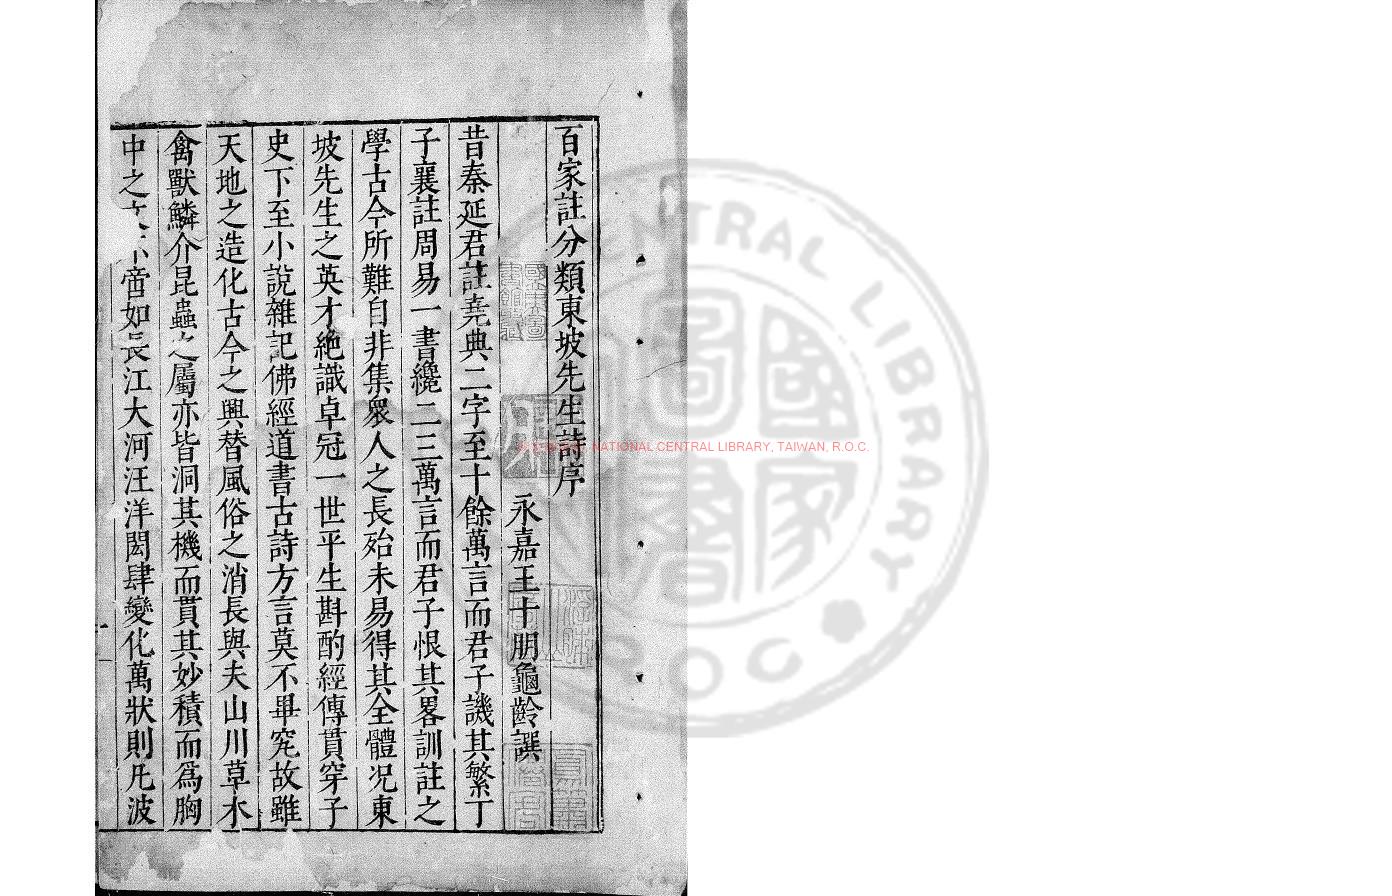 百家註分類東坡先生詩序
永嘉王十朋龜齡譔
昔秦延君註堯典二字至十餘萬言而君子譏其繁丁
子襄註周易一書纔二三萬言而君子恨其畧訓註之
學古今所難自非集衆人之長殆未易得其全體况東
坡先生之英才絶識卓冠一世平生斟酌經傳貫穿子
史下至小說雜記佛經道書古詩方言莫不畢究故雖
天地之造化古今之興替風俗之消長與夫山川草木
禽獸鱗介昆蟲之屬亦皆洞其機而貫其妙積而爲胸
中之文不啻如長江大河汪洋閎肆變化萬狀則凡波
NATIONAL CENTRAL LIBRARY, TAIWAN, R.O.C.
CENTRAL LIBRARY
R.O.C